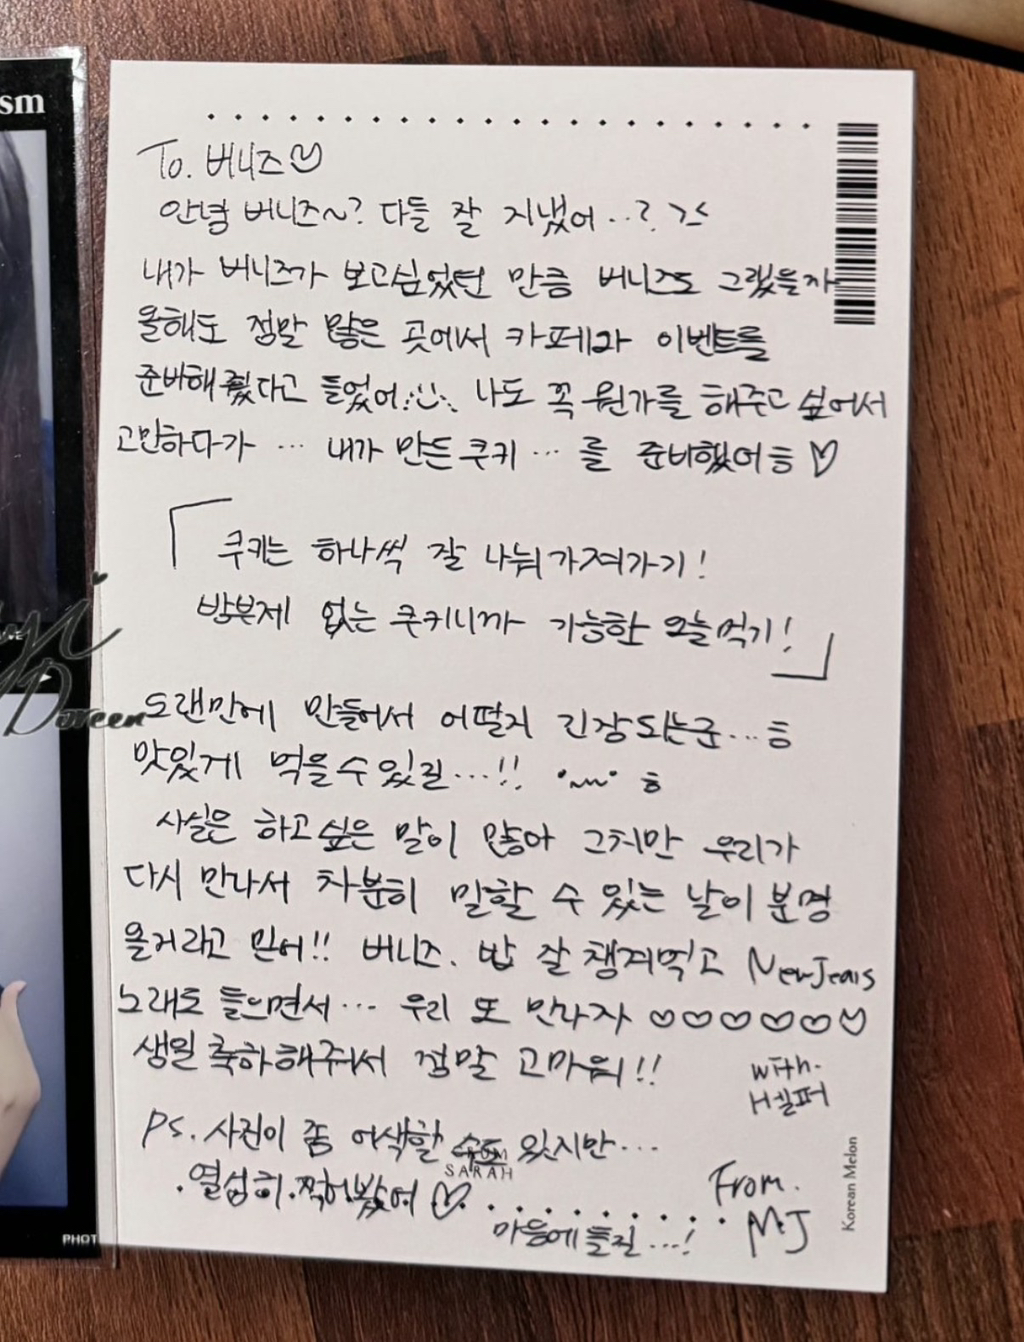 sm
To. 버니즈♡
안녕 버니즈~? 다들 잘 지냈어..? ><
내가 버니즈가 보고싶었던 만큼 버니즈도 그랬을까
올해도 정말 많은 곳에서 카페과 이벤트를
준비해줬다고 들었어 나도 꼭 뭔가를 해주고 싶어서
고민하다가 ... 내가 만든 쿠키 ... 를 준비했어 ㅎ ♡
「쿠키는 하나씩 잘 나눠가져가기!
방부제 없는 쿠키니까 가능한 오늘먹기!」
오랜만에 만들어서 어떨지 긴장되는군...ㅎ
맛있게 먹을 수 있길...!! ㅎ
사실은 하고싶은 말이 많아 그치만 우리가
다시 만나서 차분히 말할 수 있는 날이 분명
올거라고 믿어!! 버니즈. 밥 잘 챙겨먹고 NewJeans
노래도 들으면서... 우리 또 만나자 ♡♡♡♡♡♡
생일 축하해줘서 정말 고마워!!
with.
H헬퍼
PS. 사진이 좀 어색할 수도 있지만...
FROM
SARAH
열심히 찍어봤어 ♡
마음에 들길...!
From.
MJ
Korean Melon
Doreen
PHOT